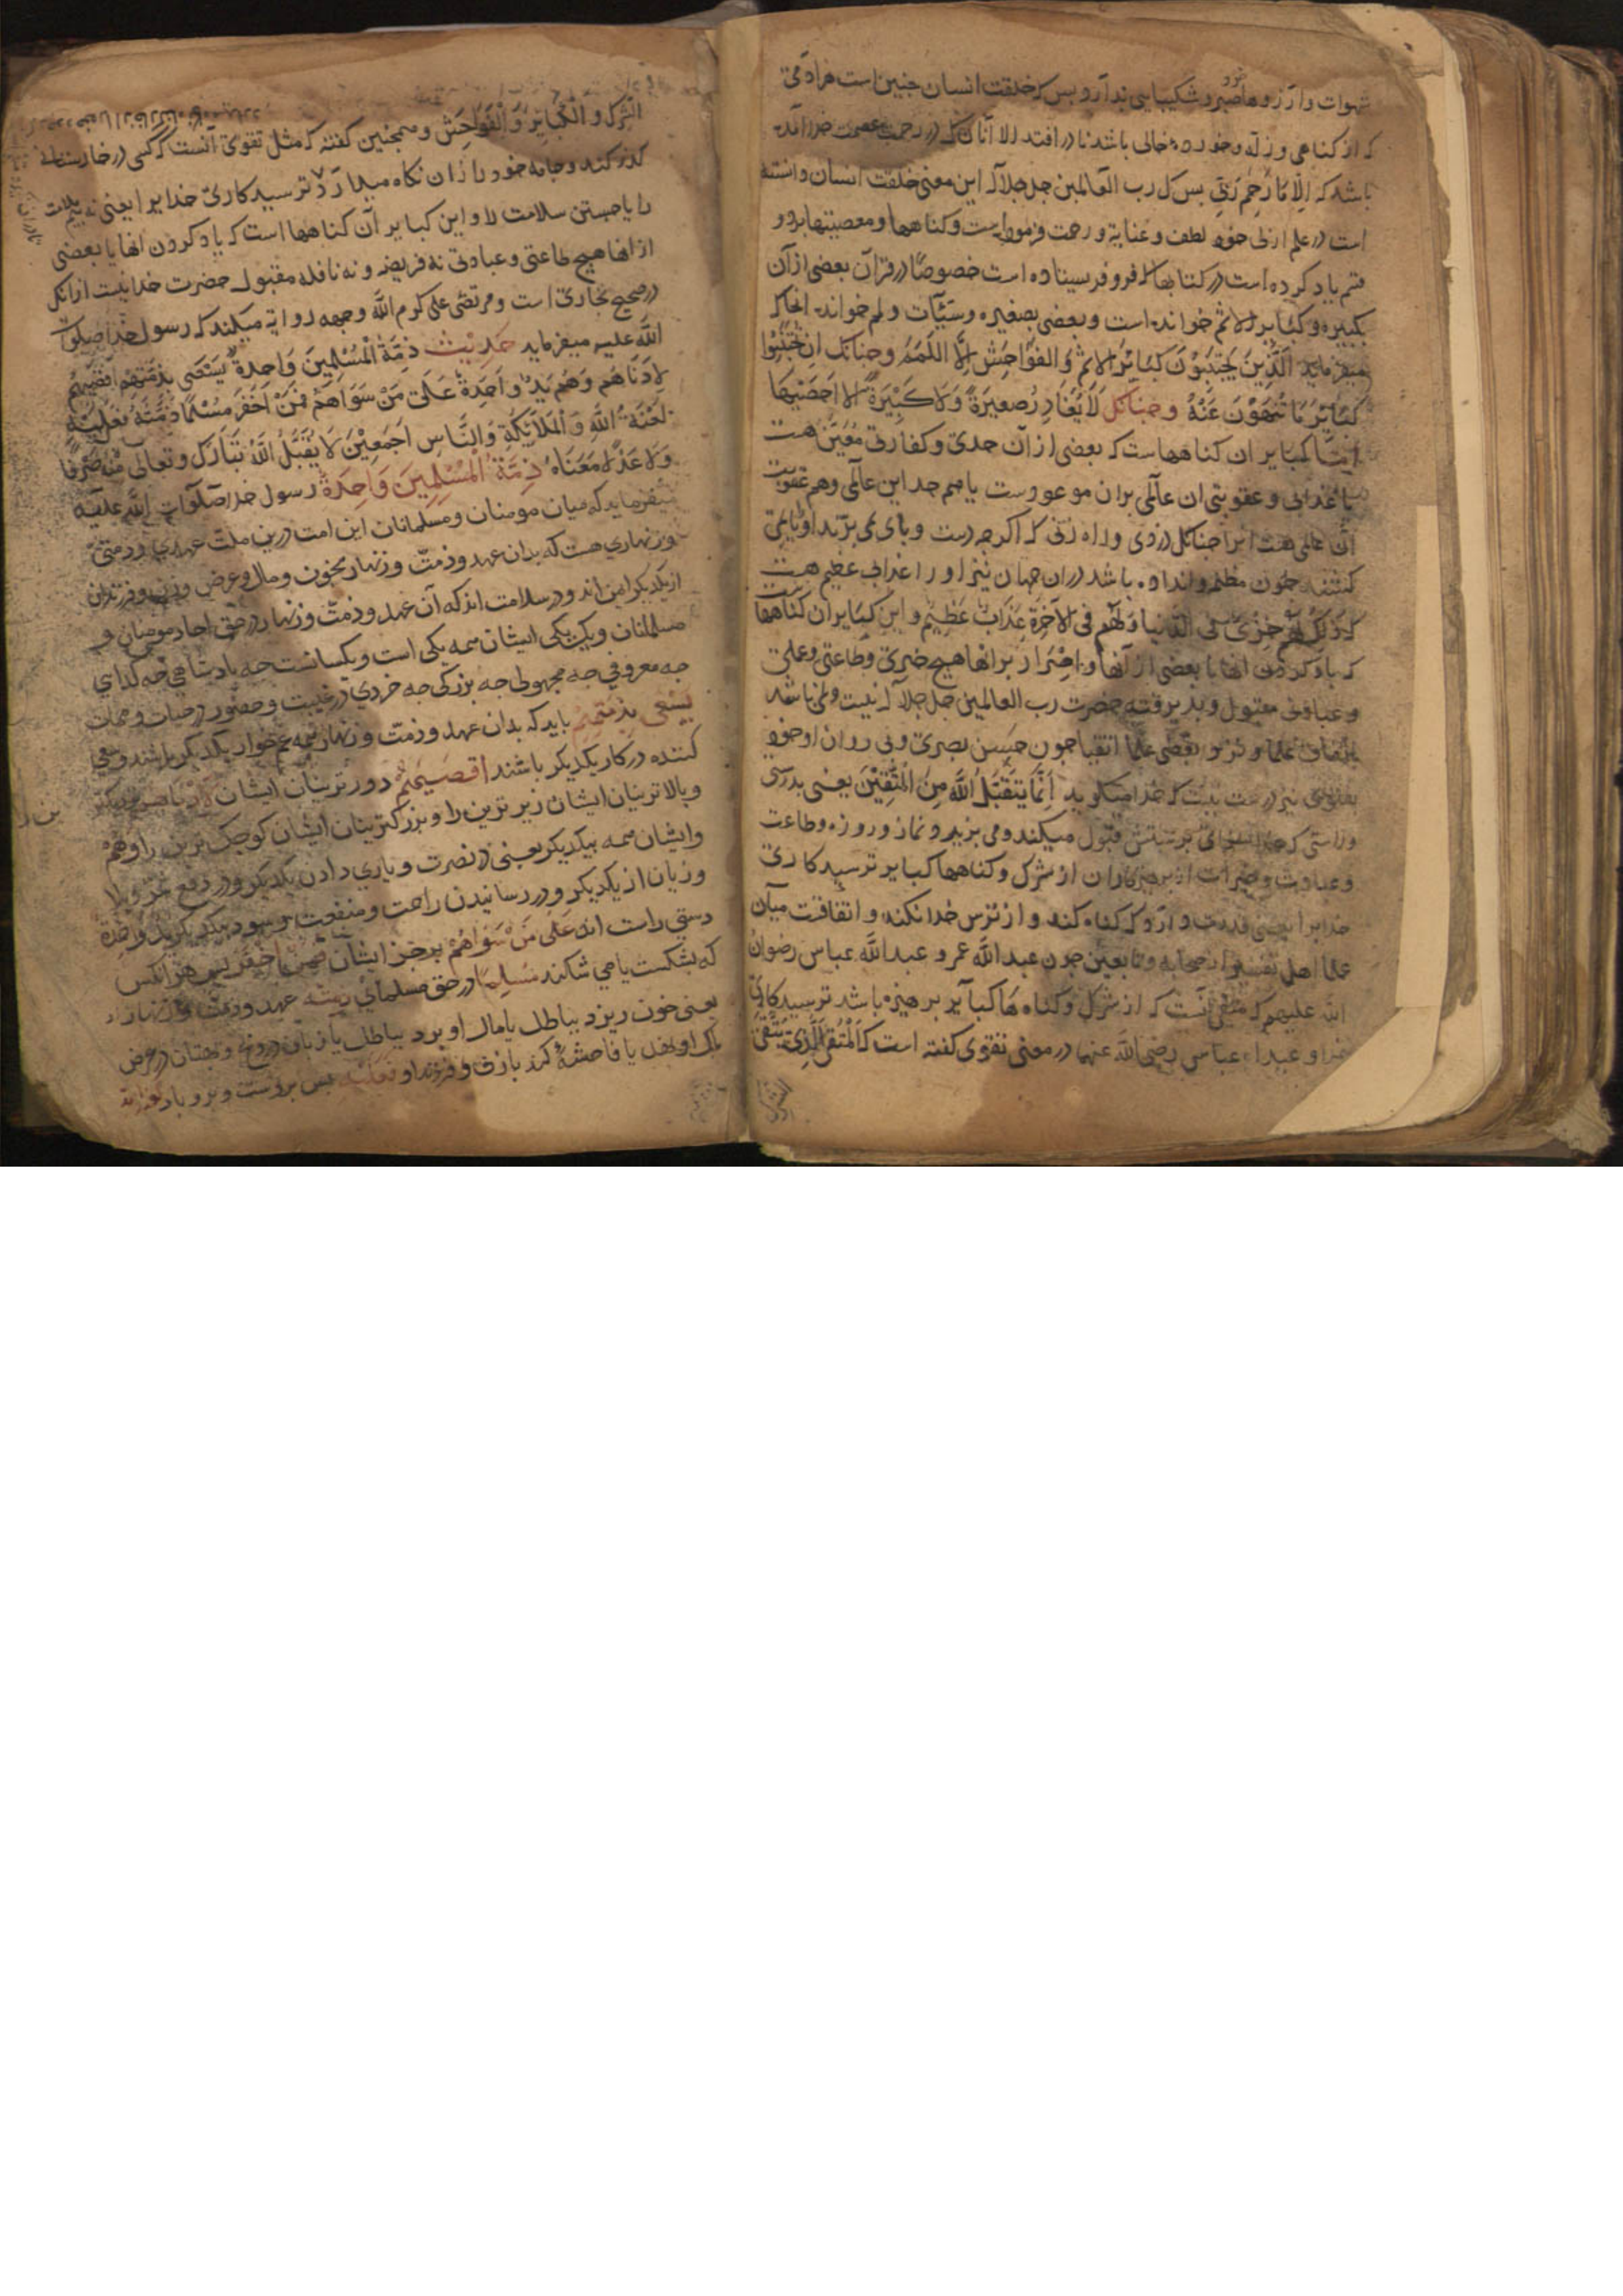 شهوات را آرزوها صبر و شکیبایی ندارد و بس که خلقت انسان چنین است هر آدمی
که از کناهی و زلة و خورده خالی باشد نادر افتد الا آنان که در رحمت عصمت خدا اند
باشد که اِلَّا مَا رَحِمَ رَبّی بس کل رب العالمین جل جلاله این معنی خلقت انسان دانسته
است در علم ازلی خود لطف و عنایة و رحمت فرموده است و کناهها و معصیتها بدو
قسم یاد کرده است در کتابها که فرو فرستاده است خصوصًا در قران بعضی از آن
بکبیره و کبایر الاثم خوانده است و بعضی بصغیره و سیّآت و لمم خوانده انجا که
میفرماید اَلَّذِینَ یَجْتَنِبُونَ کَبَائِرَ الاثمِ وَ الفَوَاحِشَ اِلَّا اللَّمَمَ و چنانک اِنْ تَجْتَنِبُوا
کَبَائِرَ مَا تُنْهَوْنَ عَنْهُ و چنانکه لَا یُغَادِرُ صَغِیرَةً وَلَا کَبِیْرَةً اِلَّا اَحْصَیٰهَا
امّا کبایر ان کناههاست که بعضی از آن حدی و کفارتی مُعَیَّن هست
یا عذابی و عقوبتی ان عالمی بران موعودست یا هم حد این عالمی و هم عقوبت
آن عالمی هست انرا چنانکه دزدی و راه زنی که اکرچه دست و پای می برند او را یا می
کشند چون مظلم و انداو باشد در ان جهان نیز او را عذاب عظیم هست
که ذٰلِکَ لَهُمْ خِزْیٌ فِی الدُّنیا وَ لَهُمْ فِی الآخِرَةِ عَذَابٌ عَظِیْمٌ و این کبایر ان کناهها
که یاد کردن انها با بعضی از آنها و اصرار بر انها هیچ خیری و طاعتی و عملی
و عبادتی مقبول و پذیرفته حضرت رب العالمین جل جلاله نیست و نمی باشد
باتفاق علما و نزد بعضی علما اتقیا چون حَسَن بصری و بی روان او خود
بفتوی نیز درست نیست که خدا میکوید اِنَّمَا یَتَقَبَّلُ اللّٰهُ مِنَ الْمُتَّقِیْنَ یعنی بدرستی
و راستی که خدا پرستش قبول میکند و می پزیرد و نماز و روزه و طاعت
و عبادت و خیرات از پرهیزکاران از شرک و کناهها کبایر ترسید کاری
خدایرا یعنی قدرت دارد که کناه کند و از ترس خدا نکند و اتفاقست میان
علما اهل تفسیر از صحابه و تابعین چون عبد الله عمر و عبد الله عباس رضوان
الله علیهم که متقی آنست که از شرک و کناه ها کبایر بر هیزه باشد ترسید کاری
خدا و عبد الله عباس رضی الله عنهما در معنی تقوی کفته است که اَلْمُتَّقِی الَّذِی یَتَّقِی
الشِّرکَ و الْکَبَائِرَ وَ الْفَوَاحِشَ و همچنین کفته که مثل تقوی آنست که کسی در خارستانی
کذر کند و جامه خود را از ان نکاه میدارد ترسید کاری خدایرا یعنی نه بیم ملامت
را یا جستن سلامت را و این کبایر آن کناهها است که یاد کردن انها یا بعضی
از انها هیچ طاعتی و عبادتی نه فریضه و نه نافله مقبول حضرت خدا نیست ازانکه
در صحیح بخاری است و مرتضی علی کرم الله وجهه روایة میکند که رسول خدا صلوات
الله علیه میفرماید حَدِیْث ذِمَّةُ الْمُسْلِمِینَ وَاحِدَةٌ یَسْعَی بِذِمَّتِهِمْ اَقْصَیهُمْ
لِاَدْنَاهُم وَهُمْ یَدٌ وَاحِدَةٌ عَلَی مَنْ سِوَاهُمْ فَمَنْ اَخْفَرَ مُسْلِمًا ذِمَّتَهُ فَعَلَیْهِ
لَعْنَةُ اللّٰهِ وَ الْمَلَائِکَةِ وَ النَّاسِ اَجْمَعِیْنَ لَا یَقْبَلُ اللّٰهُ تَبَارَکَ وَ تعالی مِنْهُ صَرْفًا
وَلَا عَدْلًا مَعنَاهُ ذِمَّةُ الْمُسْلِمِیْنَ وَاحِدَةٌ رسول خدا صلوات الله علیه
میفرماید که میان مومنان و مسلمانان این امت در این ملت عهدی و ذمتی
و زنهاری هست که بدان عهد و ذمت و زنهار بخون و مال و عرض و زن و فرزندان
از یکدیکر امن اند و در سلامت اند که آن عهد و ذمت و زنهار در حق احاد مومنان و
مسلمانان و یک بیکی ایشان همه یکی است و یکسانست چه بادشاهی چه کدای
چه معروفی چه مجهولی چه بزرکی چه خردی در غیبت و حضور در حیات و ممات
یَسْعَی بِذِمَّتِهِمْ باید که بدان عهد و ذمت و زنهار همه غمخوار یکدیکر باشند و سعی
کننده در کار یکدیکر باشند اَقْصَیهُمْ دور ترینان ایشان
و بالا ترینان ایشان زیر ترین را و بزرکترینان ایشان کوچک ترین را وَهُمْ
و ایشان همه بیکدیکر یعنی در نصرت و یاری دادن یکدیکر و در دفع ضر و بلا
و زیان از یکدیکر و در رسانیدن راحت و منفعت و سود بیکدیکر یَدٌ وَاحِدَةٌ
دستی راست اند عَلَی مَنْ سِوَاهُمْ بر جز ایشان فَمَنْ اَخْفَرَ پس هر انکس
که بشکست یا می شکند مُسْلِمًا در حق مسلمانی ذِمَّتَهُ عهد و ذمت و زنهار
یعنی خون ریزد بباطل یا مال او برد بباطل یا زبان دروغ و بهتان در عرض
او نهد یا فاحشهٔ کرد با زن و فرزند او فَعَلَیْهِ بس بروست و برو باد